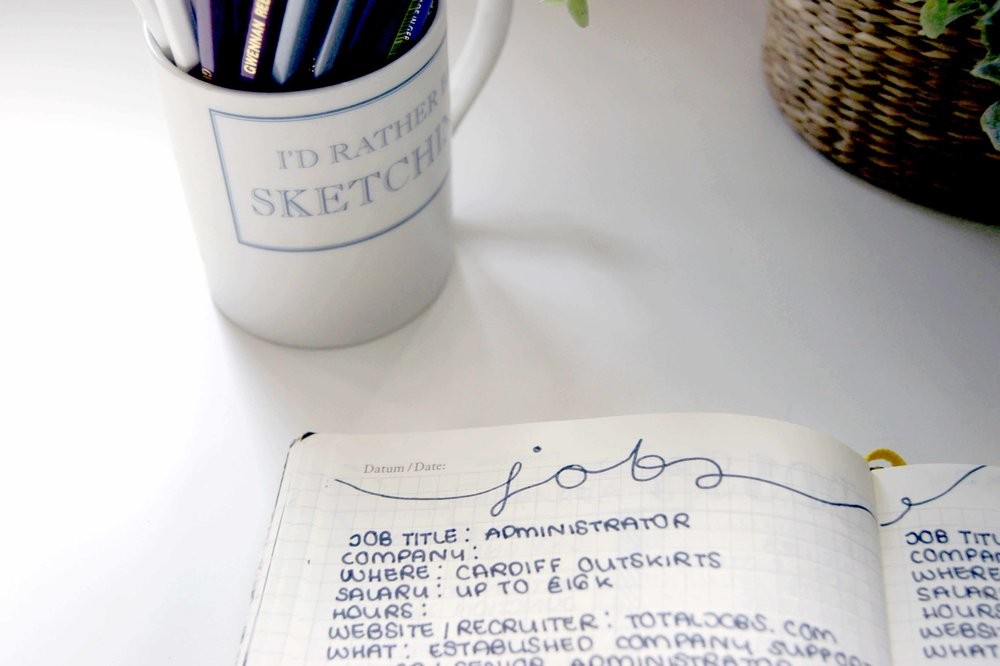 GWENNAN REE
I'D RATHER
SKETCHIN
Datum / Date:
jobs
JOB TITLE: ADMINISTRATOR
COMPANY:
WHERE: CARDIFF OUTSKIRTS
SALARY: UP TO £16K
HOURS:
WEBSITE / RECRUITER: TOTALJOBS.COM
WHAT: ESTABLISHED COMPANY SUPPOR
SENIOR ADMINISTRATOR
JOB TITL
COMPAN
WHERE
SALAR
HOURS
WEBSI
WHAT